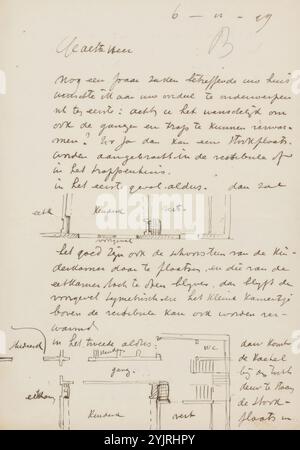 6 - 11 - 29
Geachte Heer
nog een paar zaken betreffende uw huis
wenschte ik aan uw oordeel te onderwerpen
nl ten eerste: acht u het wenschelijk om
ook de gangen en trap te kunnen verwar-
men? Zoo ja dan kan een stookplaats
worden aangebracht in de vestibule of
in het trappenhuis.
in het eerste geval aldus: dan zal
eetk kinderk vest.
voorgevel
het goed zijn ook de schoorsteen van de kin-
derkamer daar te plaatsen, en die van de
eetkamer toch te doen blijven, dan blijft de
voorgevel symetrisch en het kleine kamertje
boven de vestibule kan ook worden ver-
warmd.
in het tweede aldus: dan komt
kinderk WC de kachel
gang bij de
eetkam deur te staan
kinderk vest de stook-
plaats in
alamy
Image ID: 2YJRHPY
www.alamy.com